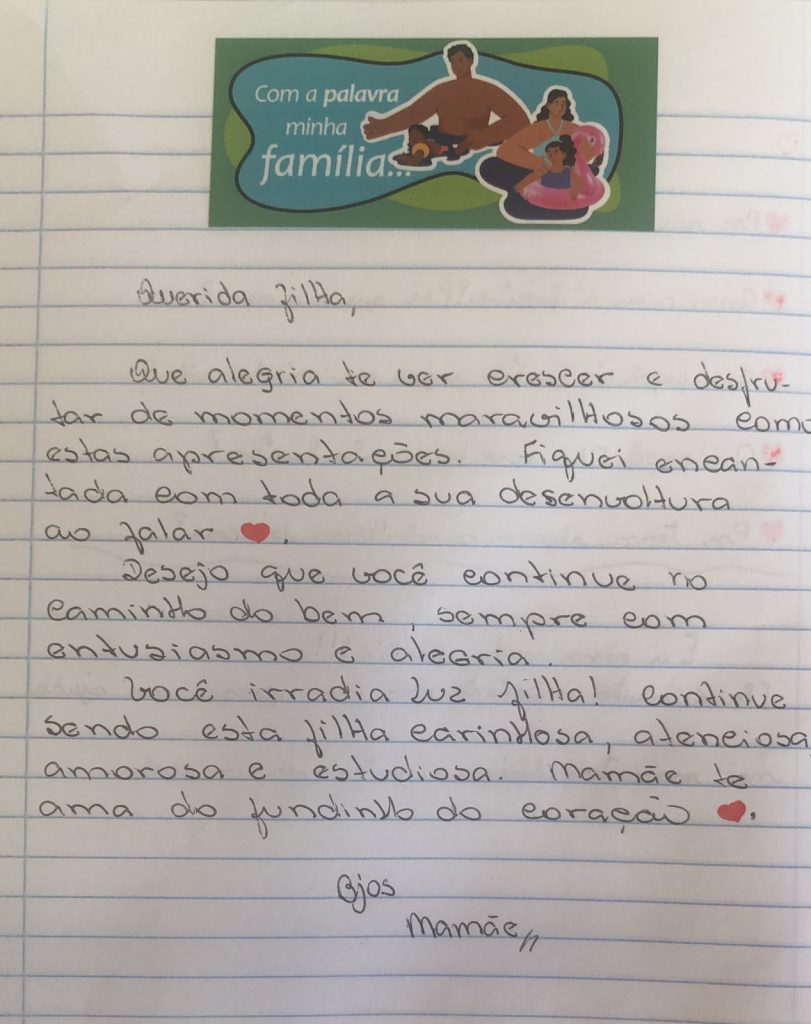 Com a palavra
minha
família...
Querida filha,
Que alegria te ver crescer e desfru-
tar de momentos maravilhosos como
estas apresentações. Fiquei encan-
tada com toda a sua desenvoltura
ao falar ❤.
Desejo que você continue no
caminho do bem, sempre com
entusiasmo e alegria.
Você irradia luz filha! Continue
sendo esta filha carinhosa, atenciosa,
amorosa e estudiosa. Mamãe te
ama do fundinho do coração ❤.
Bjos
Mamãe,,